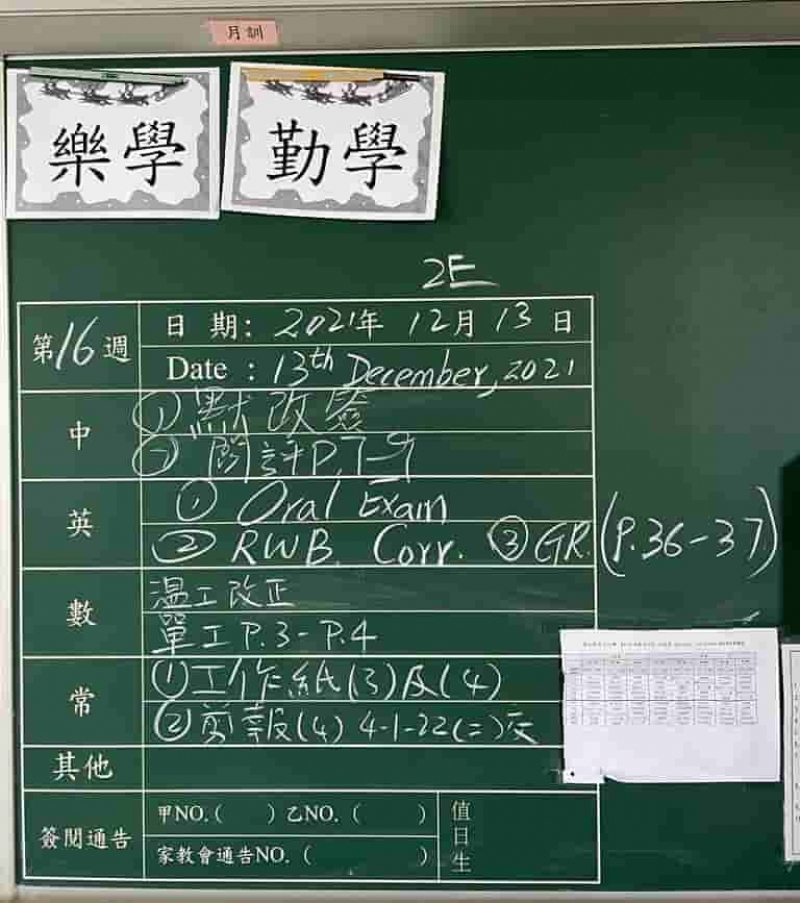 月訓
樂學
勤學
2E
第16週
日 期: 2021年 12月 13 日
Date : 13th December, 2021
中
① 默改簽
② 閱評P.7-9
英
① Oral Exam
② RWB. Corr. ③ GR. (P.36-37)
數
溫工改正
單工 P.3-P.4
常
①工作紙(3)及(4)
②剪報(4) 4-1-22(二)交
其他
簽閱通告
甲NO.( ) 乙NO. ( )
家教會通告NO. ( )
值日生